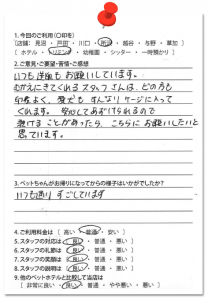 1.今回のご利用(〇印を)
[店舗・見沼 ・戸田 ・川口・所沢・越谷・与野・草加]
[ホテル・トリミング・幼稚園・シッター・一時預かり]
2.ご意見・ご要望・苦情・ご感想
いつも洋服もお願いしています。
むかえにきてくれるスタッフさんは、どの方も
印象よく、愛犬もすんなりケージに入って
くれます。安心してあずけられるので
預けることがあったら、こちらにお願いしたいと
思っています。
3.ペットちゃんがお帰りになってからの様子はいかがでしたか?
いつも通りすごしています
4.ご利用料金は [ 高い ・ 普通 ・ 安い ]
5.スタッフの対応は [ 良い ・ 普通 ・ 悪い ]
6.スタッフの電話は [ 良い ・ 普通 ・ 悪い ]
7.スタッフの笑顔は [ 良い ・ 普通 ・ 悪い ]
8.スタッフの説明は [ 良い ・ 普通 ・ 悪い ]
9.他のペットホテルと比較して当店は
[ 非常に良い ・ 良い ・ 普通 ・ やや悪い ・ 悪い ]